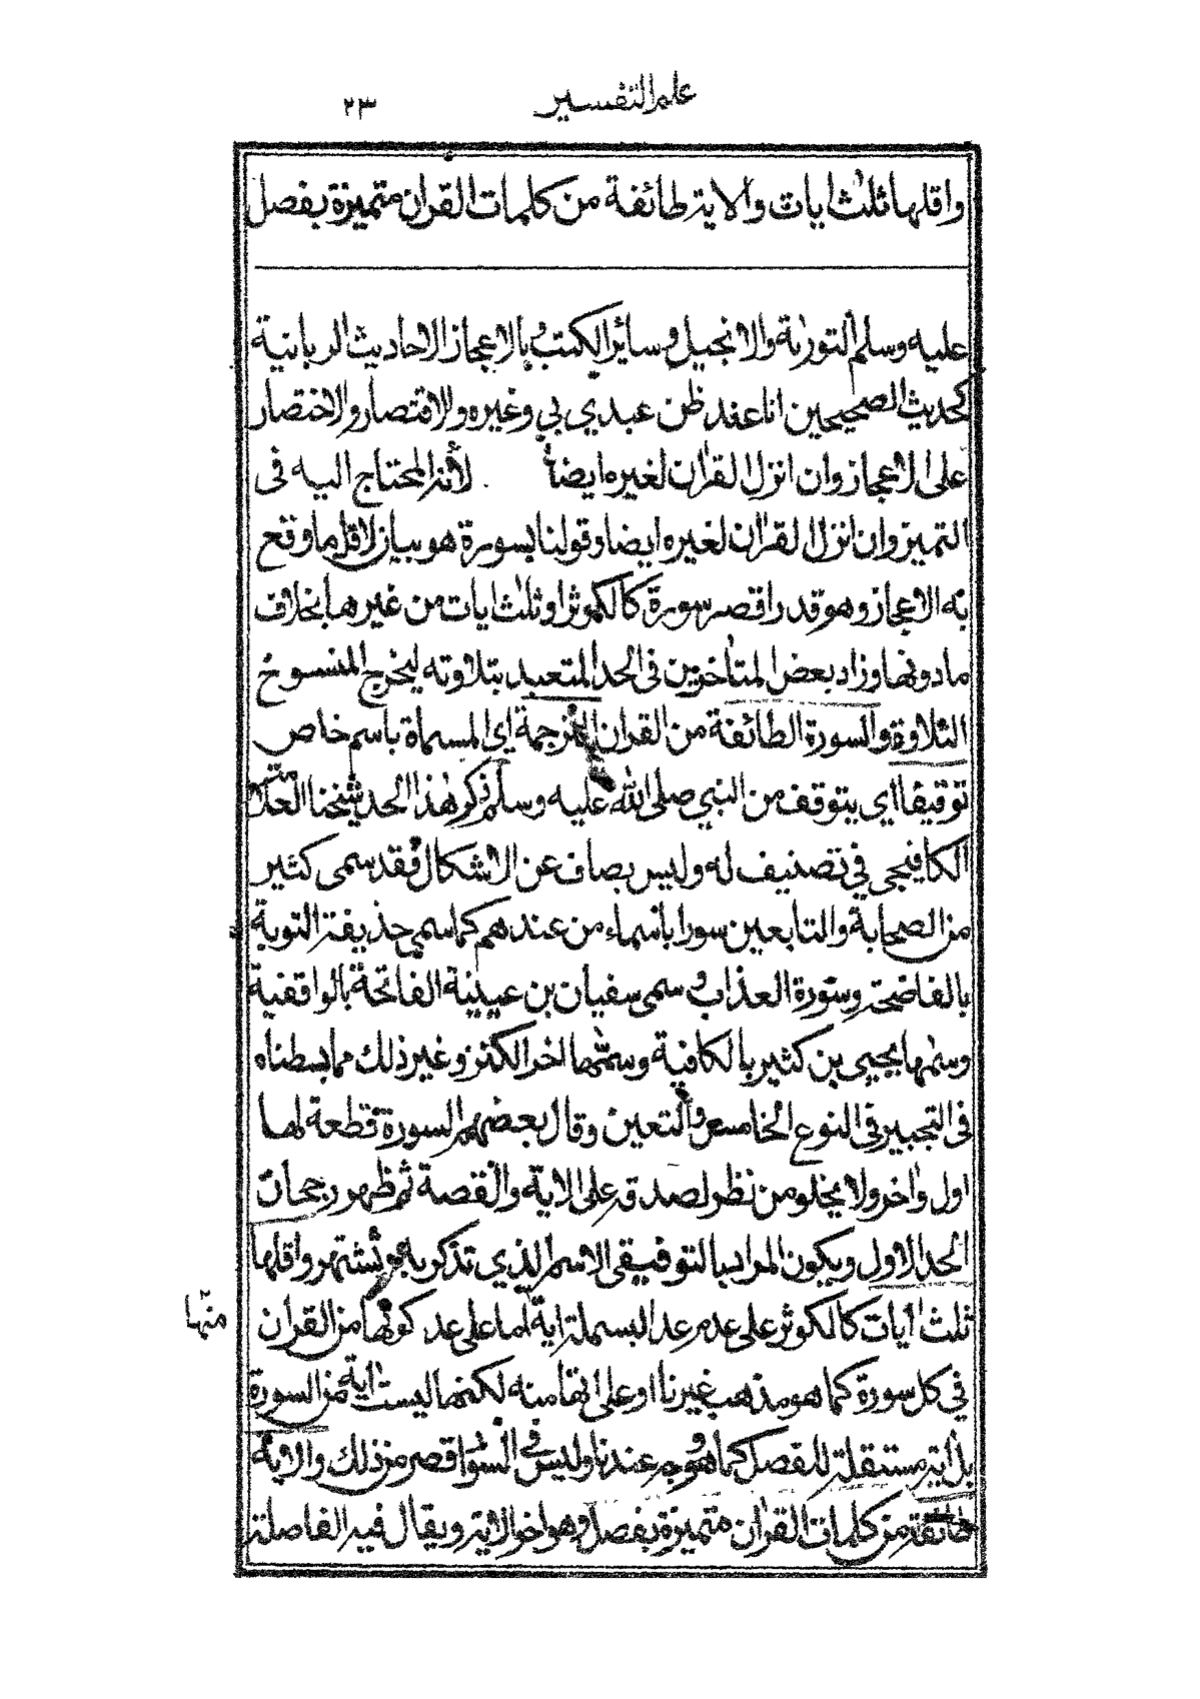 علم التفسير
٢٣
واقلها ثلث ايات والاية طائفة من كلمات القران متميزة بفصل
عليه وسلم التورىة والانجيل وسائر الكتب بالاعجاز الاحاديث الربانية
كحديث الصحيحين انا عند ظن عبدي بي وغيره والاقتصار والاختصار
على الاعجاز وان انزل القران لغيره ايضا لأنه المحتاج اليه فى
التميز وان انزل القران لغيره ايضا وقولنا بسورة هو بيان لاقل ما وقع
به الاعجاز وهو قدر اقصر سورة كالكوثر او ثلث ايات من غيرها بخلاف
ما دونها وزاد بعض المتأخرين فى الحد المتعبد بتلاوته ليخرج المنسوخ
التلاوة والسورة الطائفة من القران المترجمة اي المسماة باسم خاص
توقيفا اي بتوقف من النبي صلى الله عليه وسلم ذكر هذا الحد شيخنا العلامة
الكافيجي في تصنيف له وليس بصاف عن الاشكال فقد سمى كثير
من الصحابة والتابعين سورا باسماء من عندهم كما سمى حذيفة التوبة
بالفاضحة وسورة العذاب و سمى سفيان بن عيينة الفاتحة بالواقفية
وسمىها يحيى بن كثير بالكافية وسمىها اخر الكنز وغير ذلك مما بسطناه
فى التحبير فى النوع الخامس والتعين وقال بعضهم السورة قطعة لها
اول واخر ولا يخلو من نظر لصدقه على الاية والقصة ثم ظهر رجحان
الحد الاول ويكون المراد بالتوقيفى الاسم الذي تذكر به وتشتهر واقلها
ثلث ايات كالكوثر على عدم عد البسملة اية اما على عد كونها من القران
منها
في كل سورة كما هو مذهب غيرنا او على انها منه لكنها ليست اية من السورة
بل اية مستقلة للفصل كما هو وجه عندنا وليس في السور اقصر من ذلك والاية
طائفة من كلمات القران متميزة بفصل وهو اخر الاية ويقال فيه الفاصلة